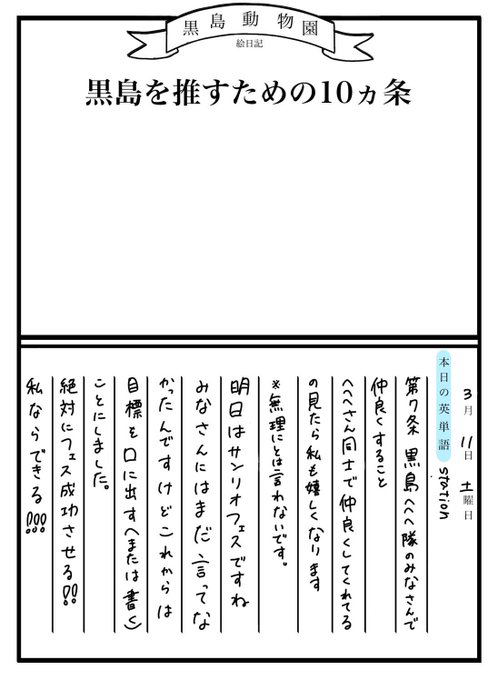 黒島動物園
絵日記
黒島を推すための10ヵ条
3月11日土曜日
本日の英単語 station
第7条 黒島へへへ隊のみなさんで
仲良くすること
へへへさん同士で仲良くしてくれてる
の見たら私も嬉しくなります
※無理にとは言わないです。
明日はサンリオフェスですね
みなさんにはまだ言ってな
かったんですけどこれからは
目標を口に出す(または書く)
ことにしました。
絶対にフェス成功させる!!
私ならできる!!!